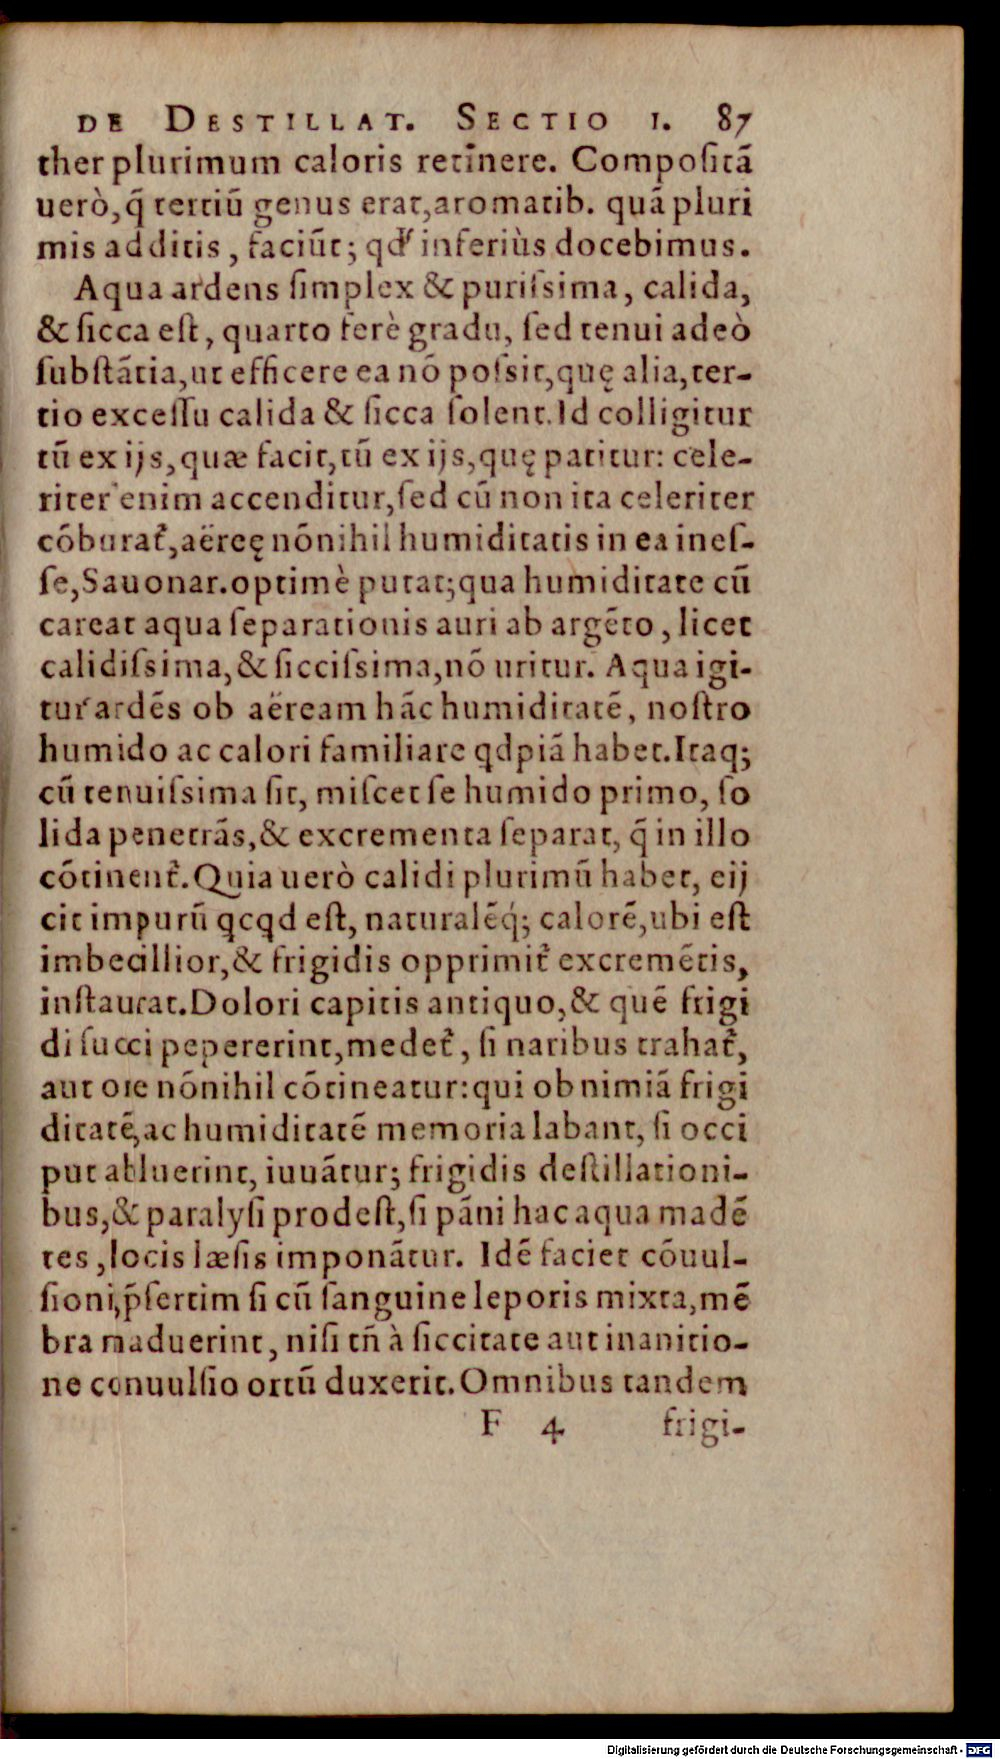 DE DESTILLAT. SECTIO I. 87
ther plurimum caloris retinere. Compositā
uerò, q̃ tertiū genus erat, aromatib. quā pluri
mis additis, faciūt; qđ inferiùs docebimus.
Aqua ardens simplex & purissima, calida,
& sicca est, quarto ferè gradu, sed tenui adeò
substātia, ut efficere ea nō possit, quę alia, ter-
tio excessu calida & sicca solent. Id colligitur
tū ex ijs, quæ facit, tū ex ijs, quę patitur: cele-
riter enim accenditur, sed cū non ita celeriter
cōburat᷑, aëreę nōnihil humiditatis in ea ines-
se, Sauonar. optimè putat; qua humiditate cū
careat aqua separationis auri ab argēto, licet
calidissima, & siccissima, nō uritur. Aqua igi-
tur ardēs ob aëream hāc humiditatē, nostro
humido ac calori familiare qdpiā habet. Itaq;
cū tenuissima sit, miscet se humido primo, so
lida penetrās, & excrementa separat, q̃ in illo
cōtinent᷑. Quia uerò calidi plurimū habet, eij
cit impurū qcqd est, naturalēq́; calorē, ubi est
imbecillior, & frigidis opprimit᷑ excremētis,
instaurat. Dolori capitis antiquo, & quē frigi
di succi pepererint, medet᷑, si naribus trahat᷑,
aut ore nōnihil cōtineatur: qui ob nimiā frigi
ditatē, ac humiditatē memoria labant, si occi
put abluerint, iuuātur; frigidis destillationi-
bus, & paralysi prodest, si pāni hac aqua madē
tes, locis læsis imponātur. Idē faciet cōuul-
sioni, p̄sertim si cū sanguine leporis mixta, mē
bra maduerint, nisi tñ à siccitate aut inanitio-
ne conuulsio ortū duxerit. Omnibus tandem
F 4 frigi-
Digitalisierung gefördert durch die Deutsche Forschungsgemeinschaft - DFG